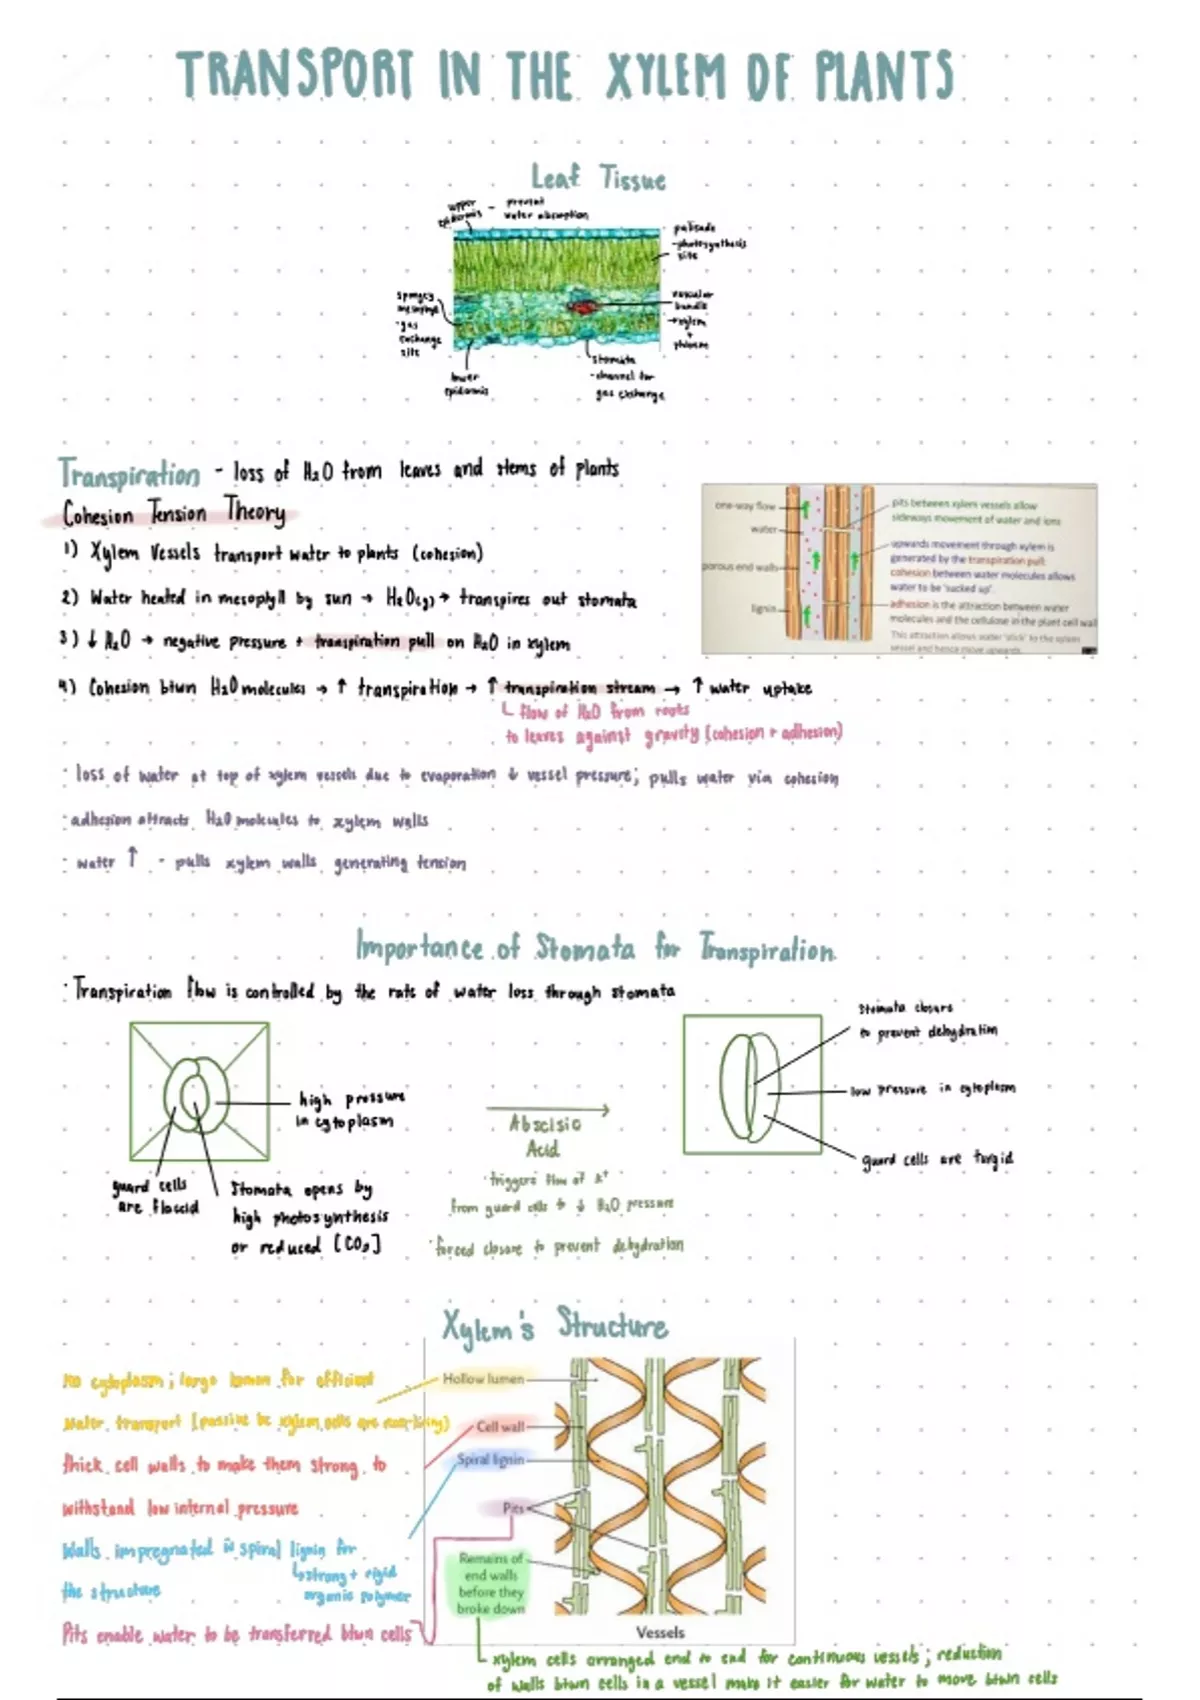 TRANSPORT IN THE XYLEM OF PLANTS
Leaf Tissue
upper epidermis - prevent water absorption
palisade
-photosynthesis
site
spongey
mesophyll
·gas
exchange
site
vascular
bundle
→xylem
+
phloem
lower
epidermis
stomata
-channel for
gas exchange
Transpiration - loss of H₂O from leaves and stems of plants
Cohesion Tension Theory
1) Xylem Vessels transport water to plants (cohesion)
2) Water heated in mesophyll by sun → H₂O(g) → transpires out stomata
3) ↓ H₂O → negative pressure + transpiration pull on H₂O in xylem
4) Cohesion btwn H₂O molecules → ↑ transpiration → ↑ transpiration stream → ↑ water uptake
↳ flow of H₂O from roots
to leaves against gravity (cohesion + adhesion)
one-way flow
water
porous end walls
lignin
pits between xylem vessels allow
sideways movement of water and ions
upwards movement through xylem is
generated by the transpiration pull:
cohesion between water molecules allows
water to be 'sucked up'.
adhesion is the attraction between water
molecules and the cellulose in the plant cell wall
This attraction allows water 'stick' to the xylem
vessel and hence move upwards.
· loss of water at top of xylem vessels due to evaporation ↓ vessel pressure; pulls water via cohesion
·adhesion attracts H₂O molecules to xylem walls
· water ↑ - pulls xylem walls generating tension
Importance of Stomata for Transpiration
·Transpiration flow is controlled by the rate of water loss through stomata
high pressure
in cytoplasm
guard cells
are flaccid
Stomata opens by
high photosynthesis
or reduced [CO₂]
Abscisic
Acid
·triggers flow of K⁺
from guard cells to ↓ H₂O pressure
·forced closure to prevent dehydration
Stomata closure
to prevent dehydration
low pressure in cytoplasm
guard cells are turgid
Xylem's Structure
no cytoplasm; large lumen for efficient
water transport (passive bc xylem cells are non-living)
thick cell walls to make them strong to
withstand low internal pressure
Walls impregnated w spiral lignin for
the structure
↳strong + rigid
organic polymer
Pits enable water to be transferred btwn cells
Hollow lumen
Cell wall
Spiral lignin
Pits
Remains of
end walls
before they
broke down
Vessels
xylem cells arranged end to end for continuous vessels; reduction
of walls btwn cells in a vessel make it easier for water to move btwn cells